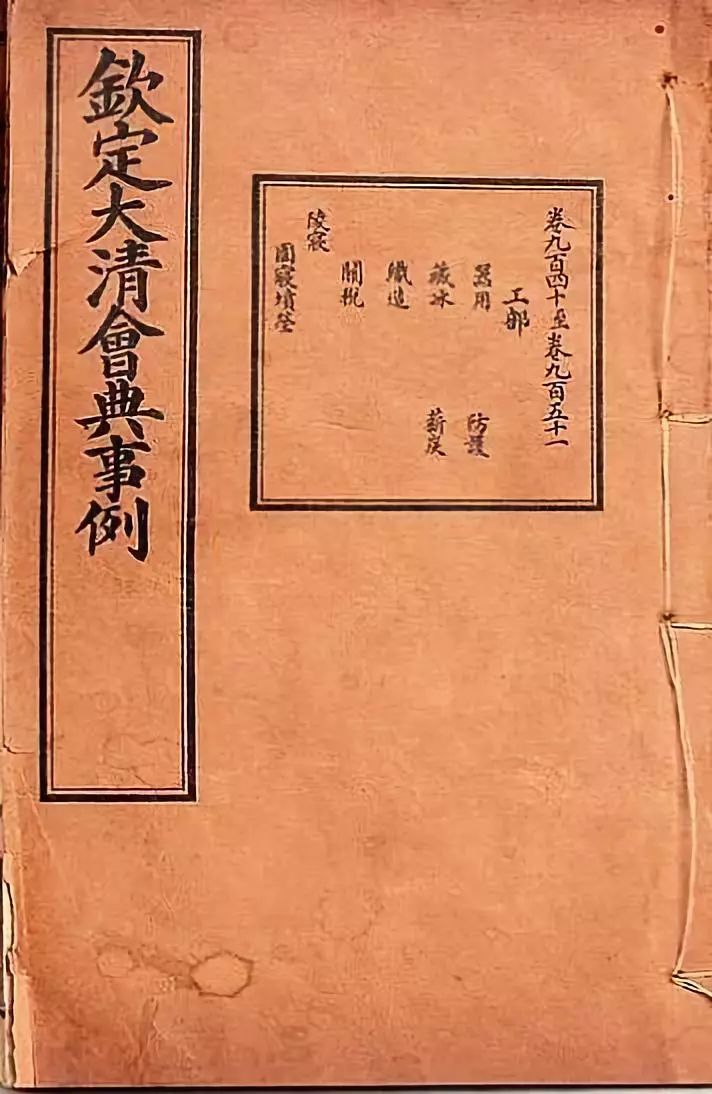 欽定大清會典事例
卷九百四十至卷九百五十一
工部
器用 防護
藏冰 薪炭
織造
關稅
陵寢
園寢墳塋